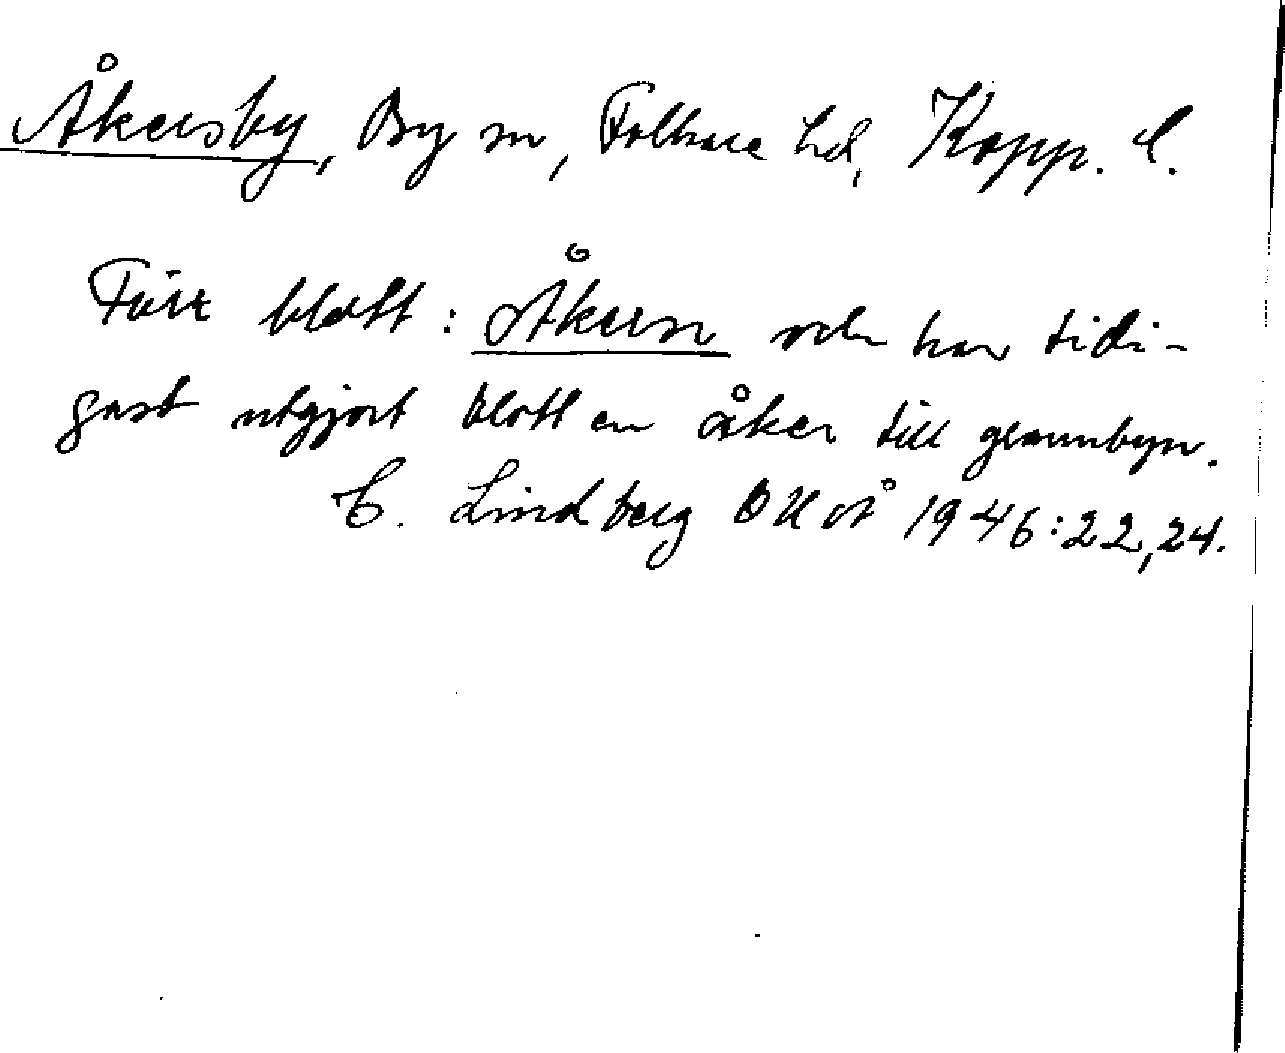 Åkersby, By sn, Folkare hd, Kopp. l.
Förr blott: Åkern och har tidi-
gast utgjort blott en åker till grannbyn.
C. Lindberg DHÅ 1946:22,24.